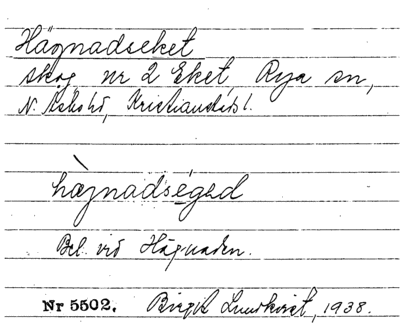 Hägnadseket
skog nr 2 Eket, Rya sn,
N. Åsbo hd, Kristianstads l.
hægnadség̀ed
Bel. vid Hägnaden.
Nr 5502. Birgit Lundkvist, 1938.